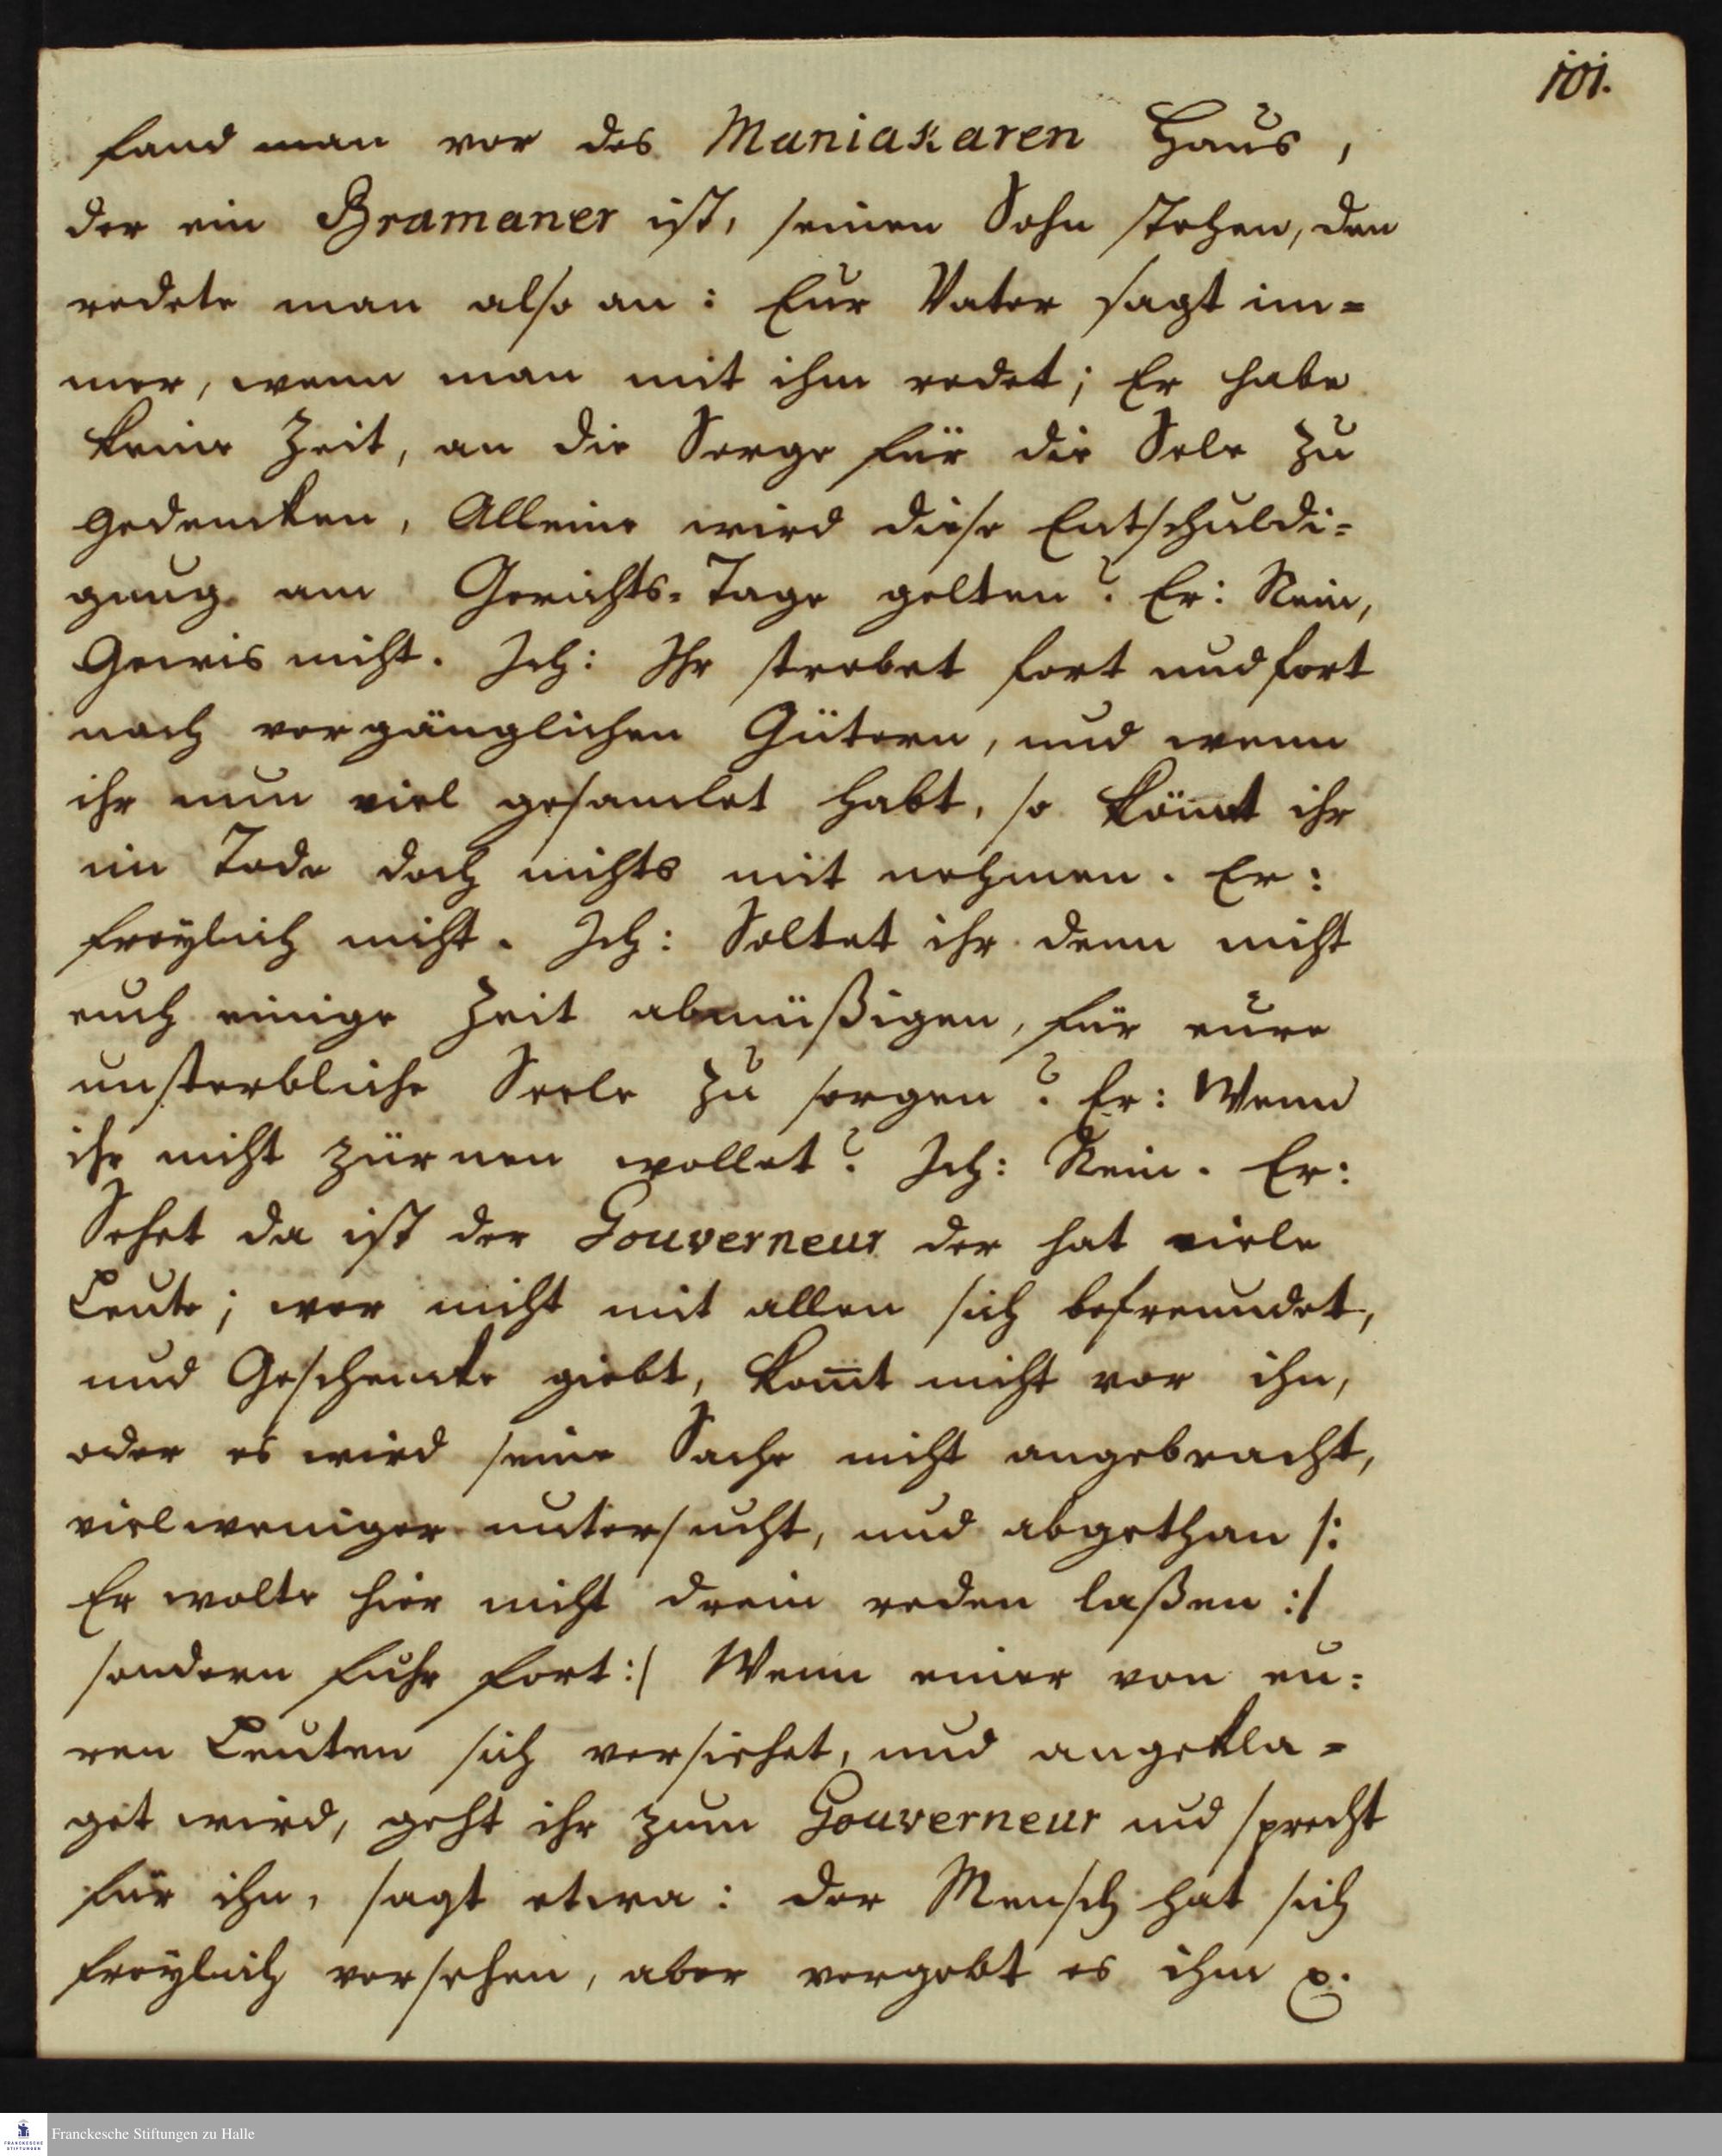 101.
fand man vor des Maniakaren Haus,
der ein Bramaner ist, seinen Sohn stehen, den
redete man also an: Eur Vater sagt im=
mer, wenn man mit ihm redet; Er habe
keine Zeit, an die Sorge für die Sele zu
gedencken, Alleine wird diese Entschuldi=
gung am Gerichts-Tage gelten? Er: Nein,
Gewis nicht. Ich: Ihr strebet fort und fort
nach vergänglichen Gütern, und wenn
ihr nun viel gesamlet habt, so könnt ihr
im Tode doch nichts mit nehmen. Er:
freylich nicht. Ich: Soltet ihr denn nicht
euch einige Zeit abmüßigen, für eure
unsterbliche Seele zu sorgen? Er: Wenn
ihr nicht zürnen wollet? Ich: Nein. Er:
Sehet da ist der Gouverneur der hat viele
Leute; wer nicht mit allen sich befreundet,
und Geschencke giebt, kom̄t nicht vor ihn,
oder es wird seine Sache nicht angebracht,
vielweniger untersucht, und abgethan /:
Er wolte hier nicht drein reden laßen :/
sondern fuhr fort:/ Wenn einer von eu=
ren Leuten sich versiehet, und angekla=
get wird, geht ihr zum Gouverneur und sprecht
für ihn, sagt etwa: der Mensch hat sich
freylich versehen, aber vergebt es ihm p.
Franckesche Stiftungen zu Halle
FRANCKESCHE
STIFTUNGEN